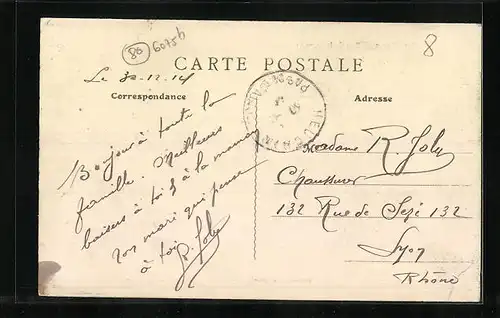 80
60756
8
CARTE POSTALE
Le 30-12-14
Correspondance
Adresse
Bonjour à toute la
famille. Meilleurs
baisers à toi & à la maman
Ton mari qui pense
à toi
R. Joly
Madame R. Joly
Chausseur
132 Rue de Sèze 132
Lyon
Rhône